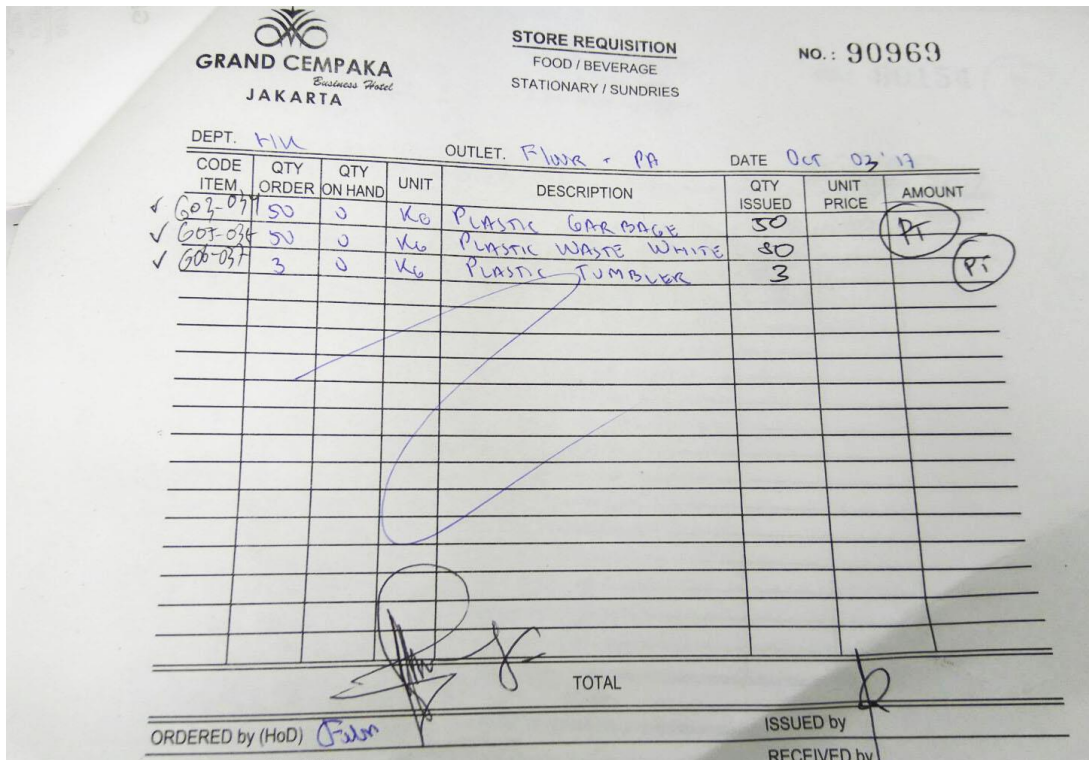 GRAND CEMPAKA
Business Hotel
JAKARTA
STORE REQUISITION
FOOD / BEVERAGE
STATIONARY / SUNDRIES
NO.: 90969
DEPT. OUTLET. Floor - PA DATE Oct 03 '17
CODE ITEM QTY ORDER QTY ON HAND UNIT DESCRIPTION QTY ISSUED UNIT PRICE AMOUNT
50 0 KG PLASTIC GARBAGE 50 PT
50 0 KG PLASTIC WASTE WHITE 50
3 0 KG PLASTIC TUMBLER 3 PT
TOTAL
ORDERED by (HoD) ISSUED by
RECEIVED by